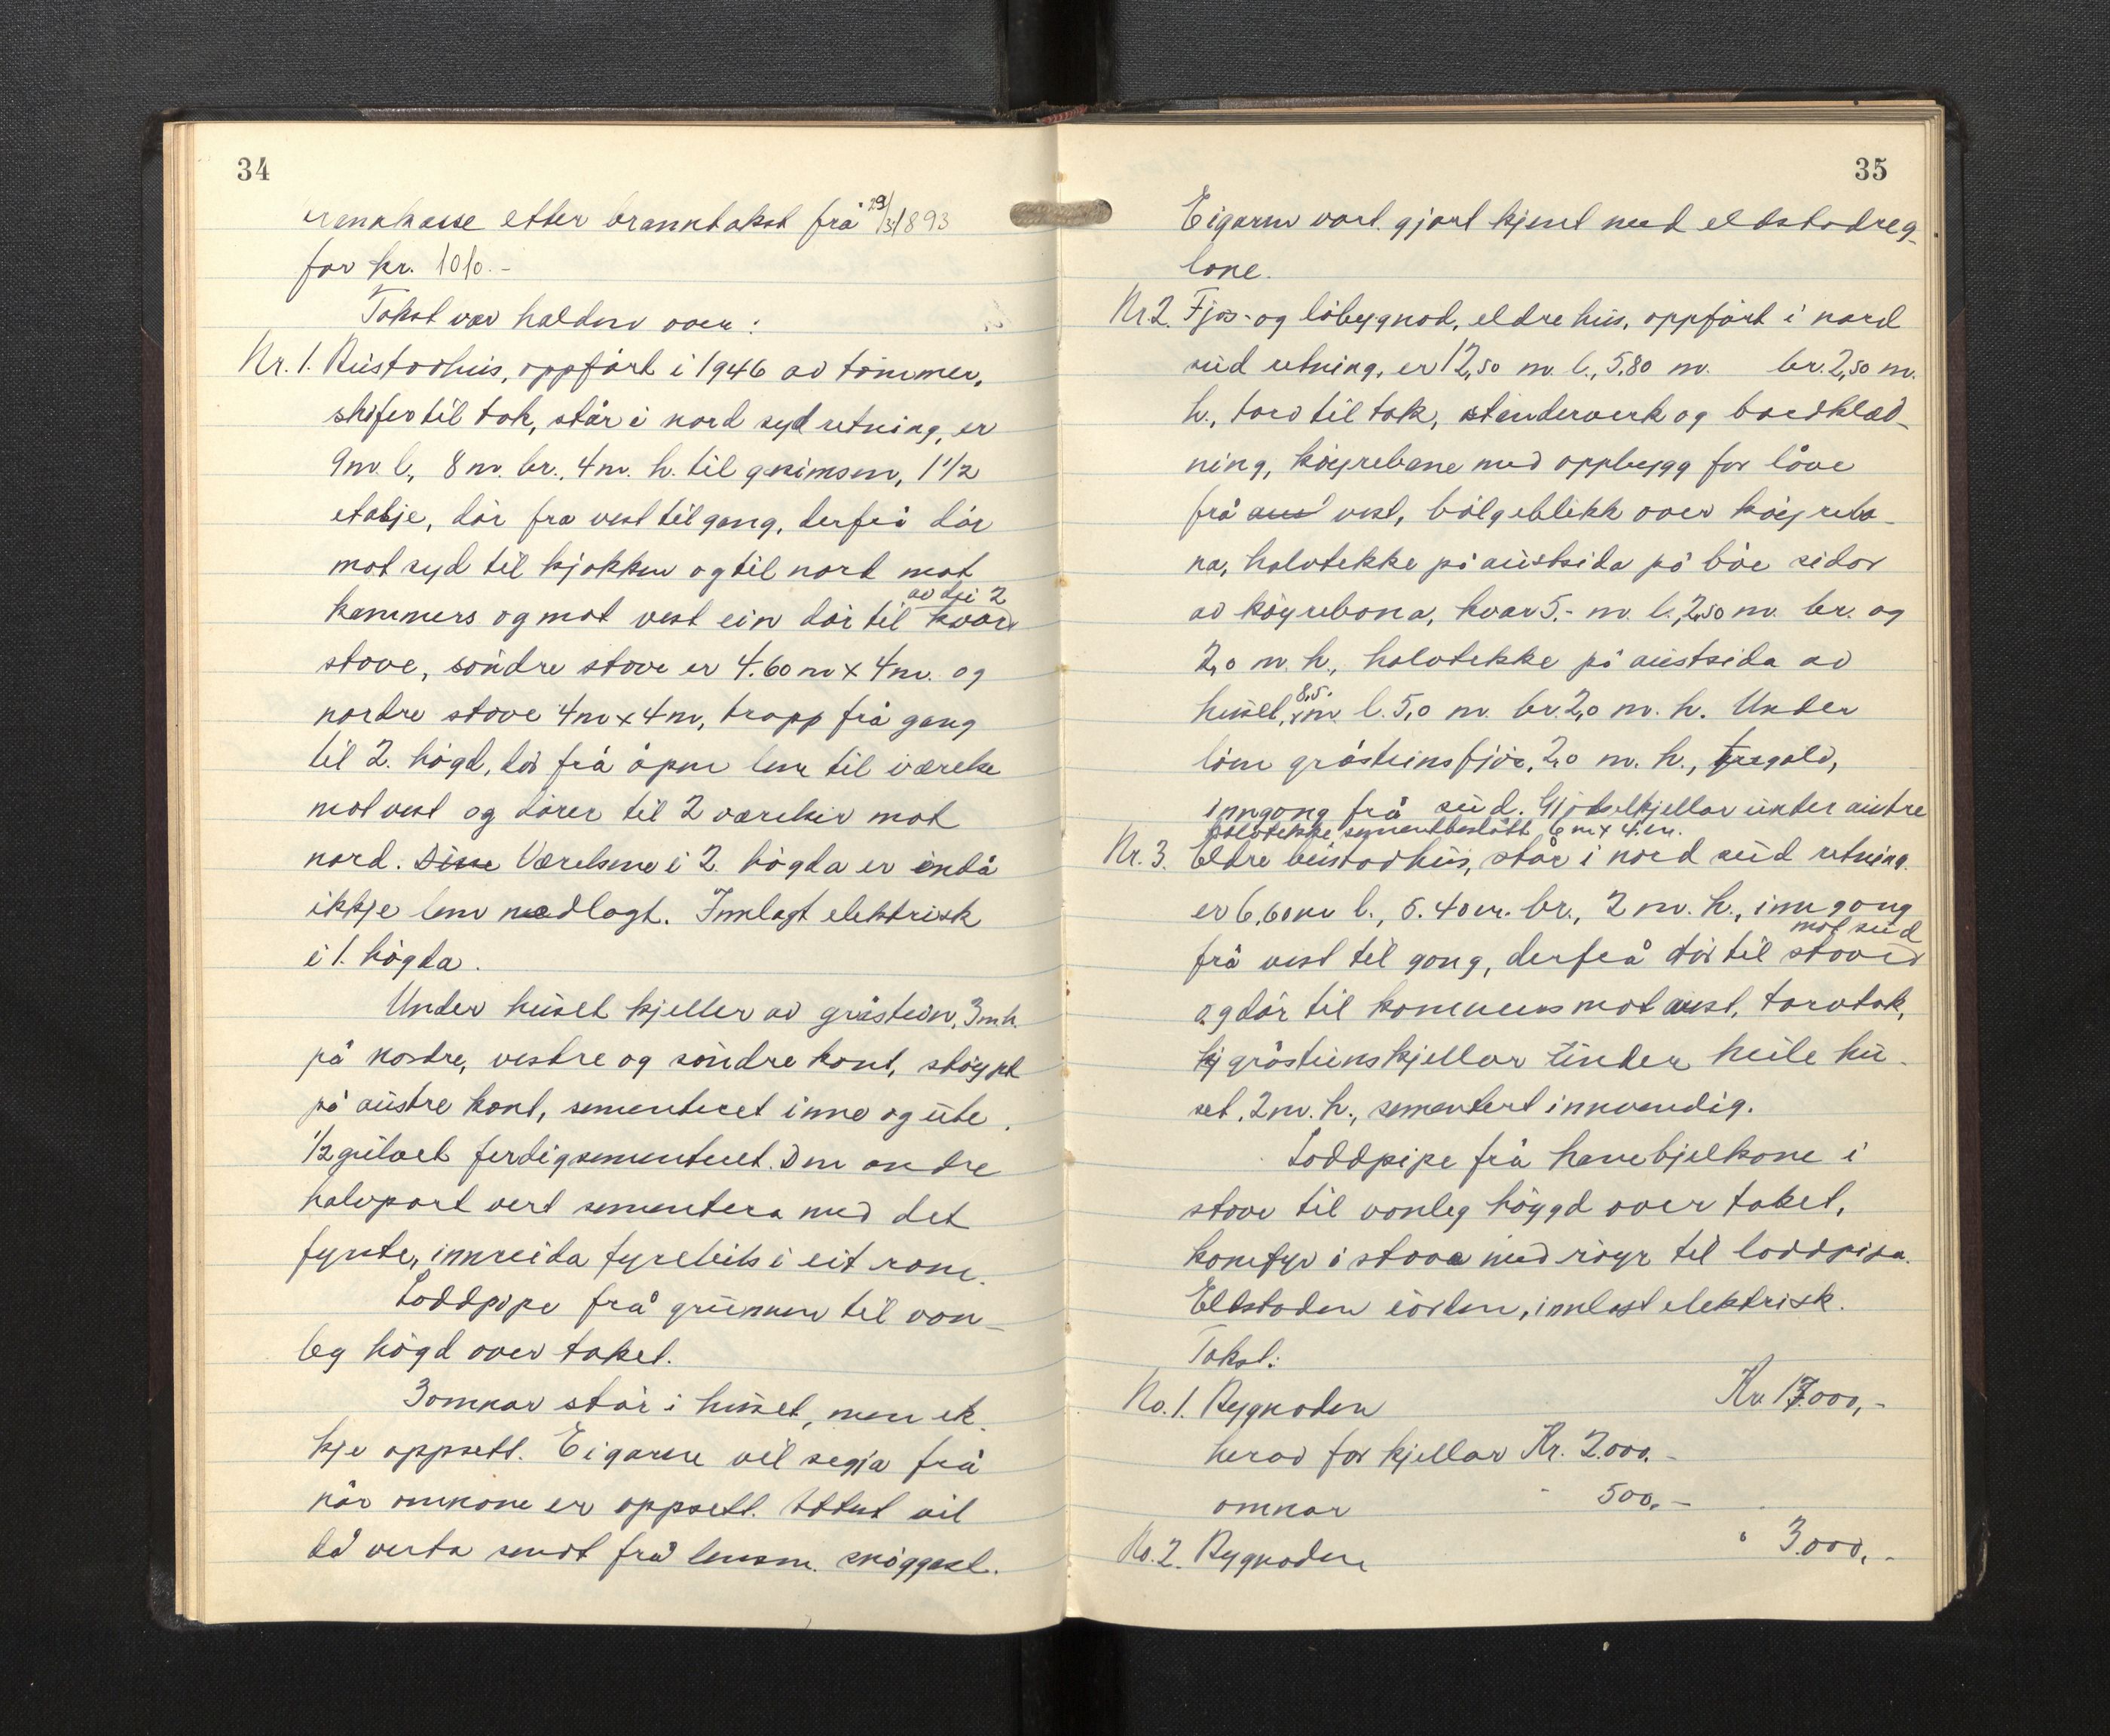 34
brannkasse etter branntakst frå 29/3 1893
for kr. 1010.-
Takst var halden over:
Nr. 1. Bustadhus, oppført i 1946 av tømmer,
skifer til tak, står i nord syd retning, er
9 m. l., 8 m. br., 4 m. h. til gesimsen, 1 1/2
etasje, dør fra vest til gang, derfrå dør
mot syd til kjøkken og til nord mot
av dei 2
kammers og mot vest ein dør til kvar
stove, søndre stove er 4.60 m x 4 m. og
nordre stove 4 m x 4 m, trapp frå gang
til 2. høgd, dør frå åpen lem til værelse
mot vest og dører til 2 værelser mot
nord. Disse Værelsene i 2. høgda er endå
ikkje lem nedlagt. Innlagt elektrisk
i 1. høgda.
Under huset kjeller av gråstein, 3 m h.
på nordre, vestre og søndre kant, støypt
på austre kant, sementeret inne og ute,
1/2 gulvet ferdig sementeret. Den andre
halvpart vert sementera med det
fyrste, innreida fyrebils i eit rom.
Loddpipe frå grunnen til van-
leg høgd over taket.
3 omnar står i huset, men ik-
kje oppsett. Eigaren vil segja frå
når omnane er oppsett. Attest vil
då verta sendt frå lensm. snøggast.
35
Eigaren vart gjort kjent med eldstadreg-
lane.
Nr. 2. Fjøs- og løbygnad, eldre hus, oppført i nord
sud retning, er 12,50 m. l., 5,80 m. br. 2,50 m.
h., torv til tak, stenderverk og bordklæd-
ning, køyrebane med oppbygg for låve
frå aus vest, bølgeblikk over køyreba-
na, halvtekke på austsida på båe sidor
av køyrebana, kvar 5.- m. l., 2,50 m. br. og
2,0 m. h., halvtekke på austsida av
8,5.
huset, m l. 5,0 m. br. 2,0 m. h. Under
løen gråsteinsfjøs, 2,0 m. h., tregolv,
inngong frå sud. Gjødselkjellar under austre
halvtekke, sementbeslått 6 m x 4 m.
Nr. 3. Eldre bustadhus, står i nord sud retning.
er 6,60 m l., 5.40 m. br., 2 m. h., inngong
mot sud
frå vest til gong, derfrå dør til stova
og dør til kammers mot aust, torvtak,
kj gråsteinskjellar under heile hu-
set, 2 m. h., sementert innvendig.
Loddpipe frå hanebjelkane i
stove til vanleg høggd over taket,
komfyr i stova med røyr til loddpipa.
Eldstaden i orden, innlagt elektrisk.
Takst:
No. 1. Bygnaden Kr. 17.000,-
herav for kjellar Kr. 2.000.-
omnar - 500,-
No. 2. Bygnaden " 3.000,-